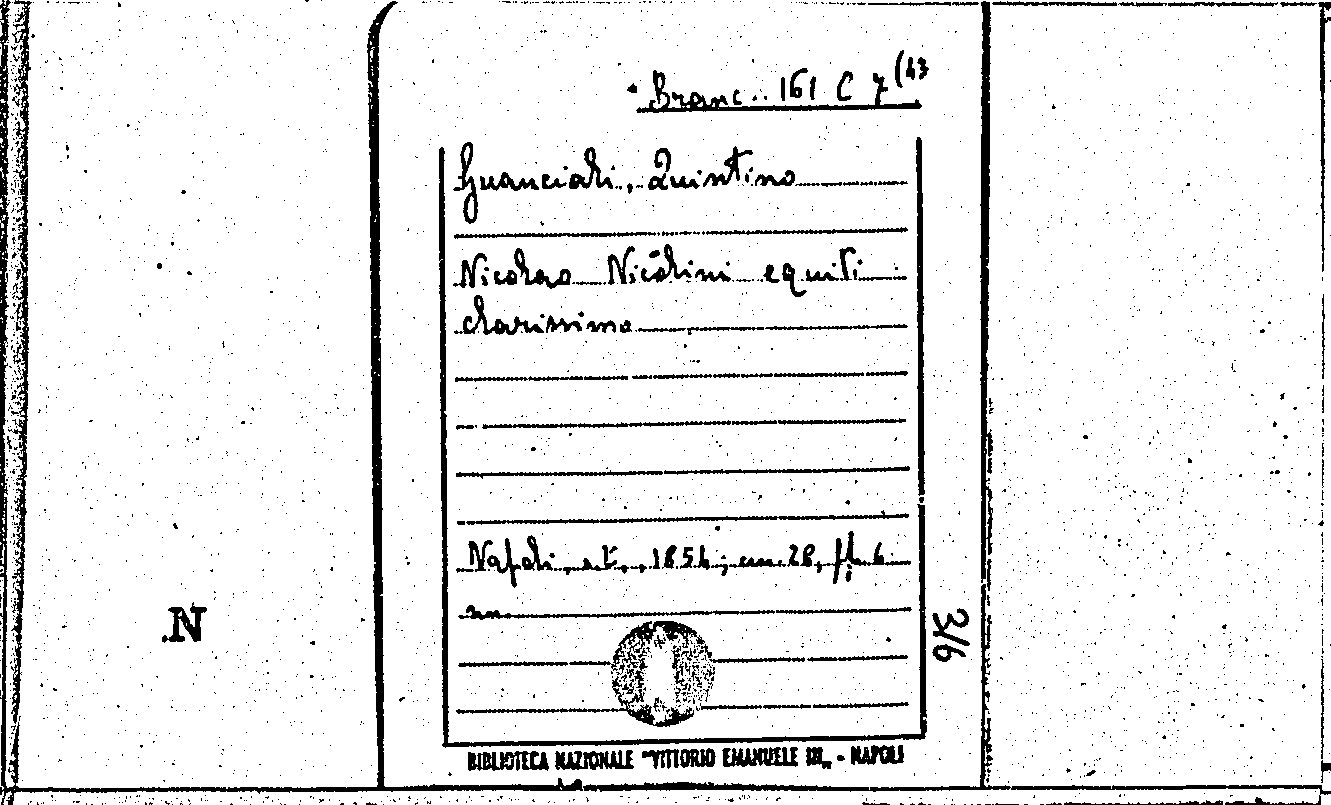 Branc. 161 C 7 (43
Guanciali, Quintino
Nicolao Nicolini equiti
clarissimo
Napoli, s.t., 1854; cm. 28, ff. 6
nn.
N
3/6
BIBLIOTECA NAZIONALE "VITTORIO EMANUELE III„ - NAPOLI